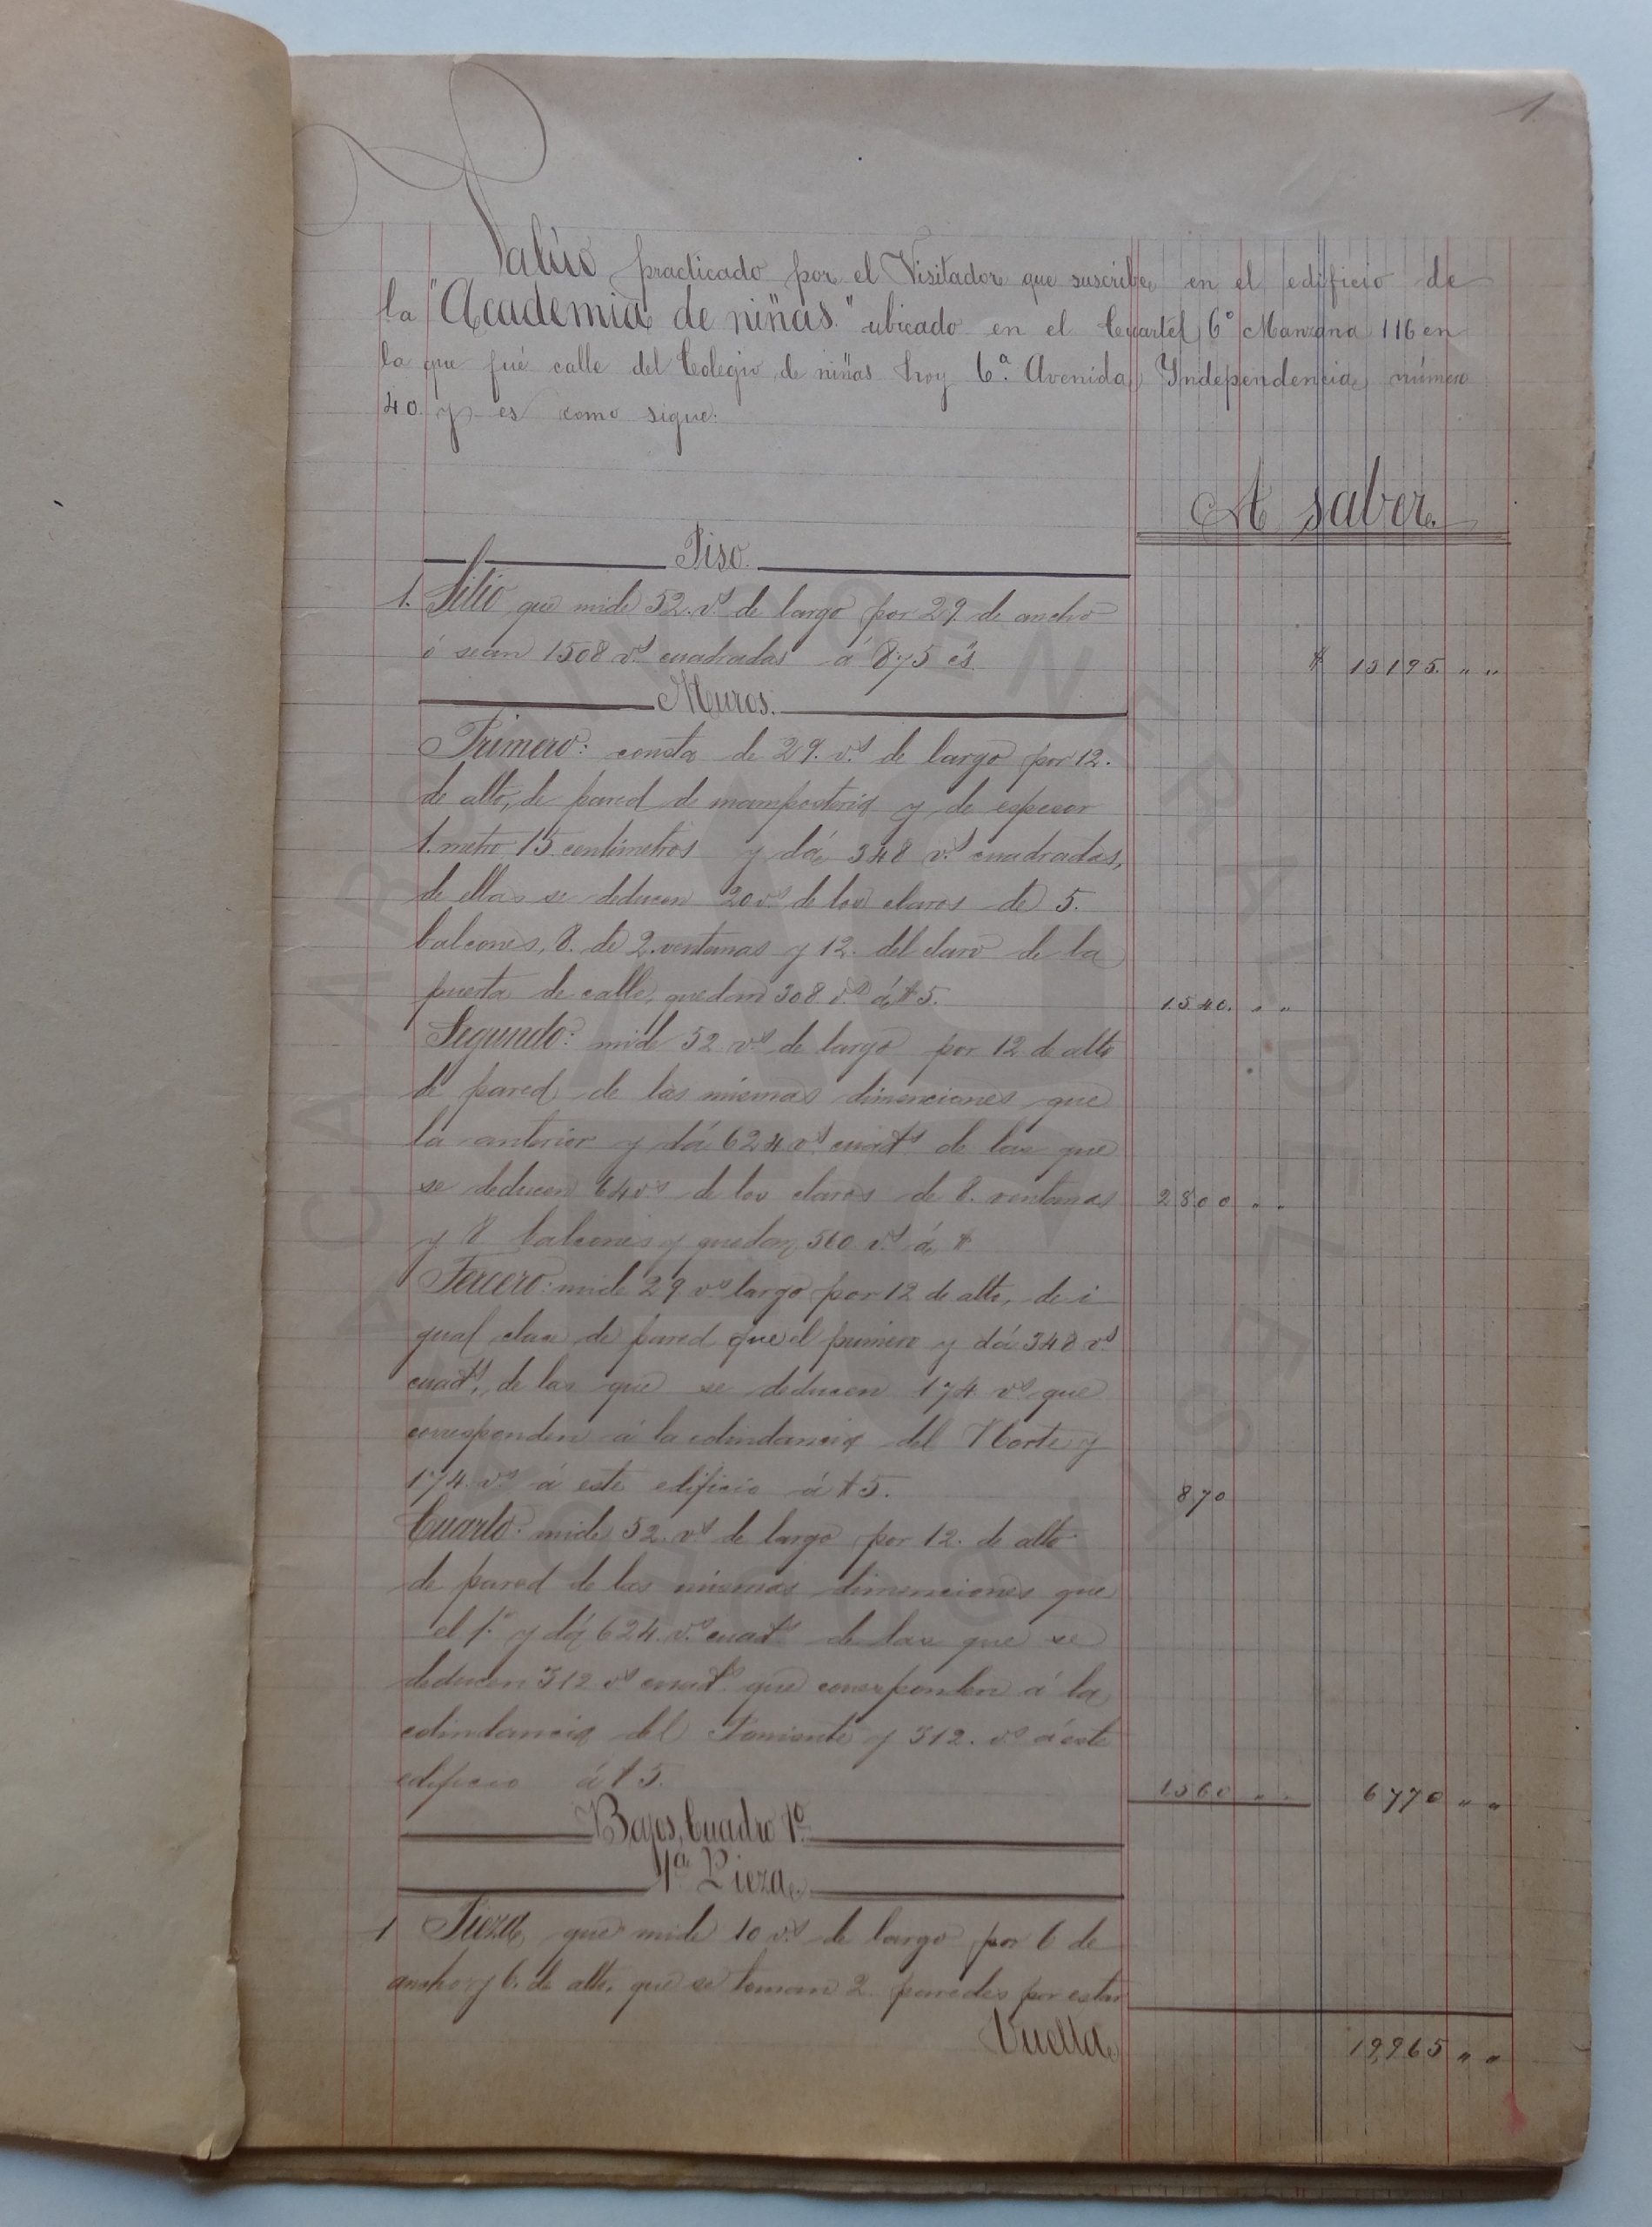 1.
Valúo practicado por el Visitador que suscribe, en el edificio de
la "Academia de niñas." ubicado en el Cuartel 6º Manzana 116 en
la que fué calle del Colegio de niñas hoy 6ª. Avenida Yndependencia, número
40. y es como sigue:
A saber.
Piso.
1. Sitio que mide 52. vˢ. de largo por 29. de ancho
ó sean 1508 vˢ. cuadradas á 875 cs. $ 13195. „ „
Muros.
Primero: consta de 29. vˢ. de largo por 12.
de alto, de pared de mampostería y de espesor
1. metro 15 centímetros y dá 348 vˢ. cuadradas,
de ellas se deducen 20 vˢ. de los claros de 5.
balcones, 8. de 2. ventanas y 12. del claro de la
puerta de calle, quedan 308 vˢ. á $5. 1540. „ „
Segundo: mide 52 vˢ. de largo por 12 de alto
de pared de las mismas dimenciones que
la anterior y dá 624 vˢ. cuadˢ. de las que
se deducen 64 vˢ de los claros de 8. ventanas 2800 „ „
y 8 balcones y quedan 560 vˢ. á $
Tercero: mide 29 vˢ largo por 12 de alto, de i
gual clase de pared que el primero y dá 348 vˢ.
cuadˢ., de las que se deducen 174 vˢ que
corresponden á la colindancia del Norte y
174. vˢ á este edificio á $5. 870
Cuarto: mide 52. vˢ de largo por 12. de alto
de pared de las mismas dimenciones que
el 1º. y dá 624. vˢ. cuadˢ. de las que se
deducen 312 vˢ cuadˢ. que corresponden á la
colindancia del Poniente y 312. vˢ á este
edificio á $5. 1560 „ „ 6770 „ „
Bajos, Cuadro 1º.
1ª. Pieza.
1 Pieza, que mide 10 vˢ. de largo por 6 de
ancho y 6. de alto, que se toman 2. paredes por estar
Vuelta 19,965 „ „
ACADEMIA DE